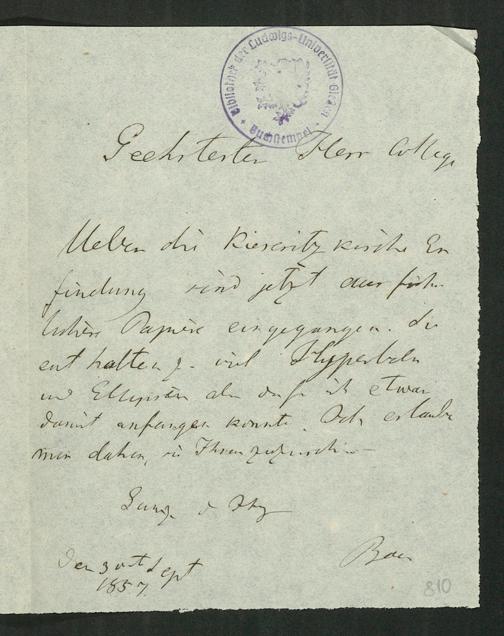 Bibliothek der Ludwigs-Universität Gießen
Buchstempel
Geehrtester Herr College
Ueber die Kieseritzkysche Er
findung sind jetzt ausführ
lichere Papiere eingegangen. Sie
enthalten z. viel Hyperbeln
und Ellipsen als daß ich etwas
damit anfangen könnte. Ich erlaube
mir daher, sie Ihnen zuzuschi
Ganz d Ihrige
Baer
den 30st Sept
1857
810